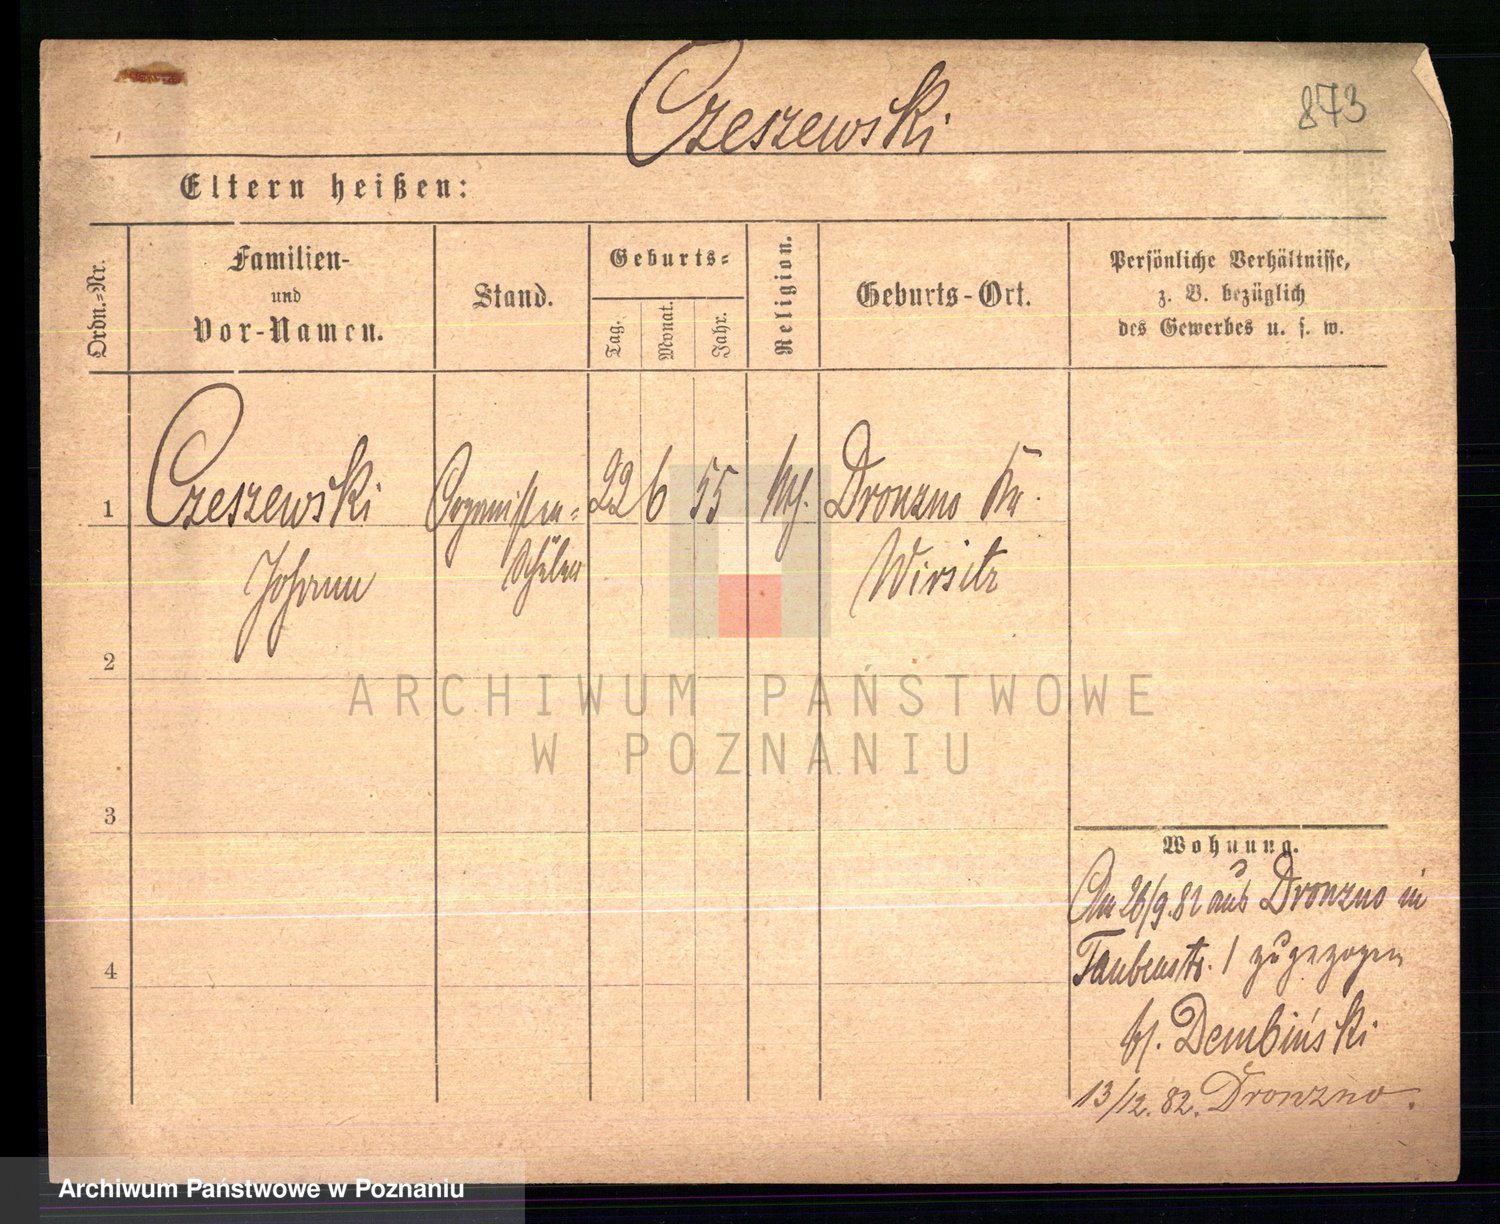 Czeszewski
873
Eltern heißen:
Ordn.-Nr.
Familien-
und
Vor-Namen.
Stand.
Geburts-
Tag.
Monat.
Jahr.
Religion.
Geburts-Ort.
Persönliche Verhältnisse,
z. B. bezüglich
des Gewerbes u. s. w.
1
Czeszewski
Johann
Organisten-
Schüler
22
6
55
kth.
Dronzno Kr.
Wirsitz
2
3
4
Wohnung.
Am 26/9.82 aus Dronzno in
Taubenstr. 1 zugezogen
b/. Dembiński
13/12. 82. Dronzno.
ARCHIWUM PAŃSTWOWE
W POZNANIU
Archiwum Państwowe w Poznaniu